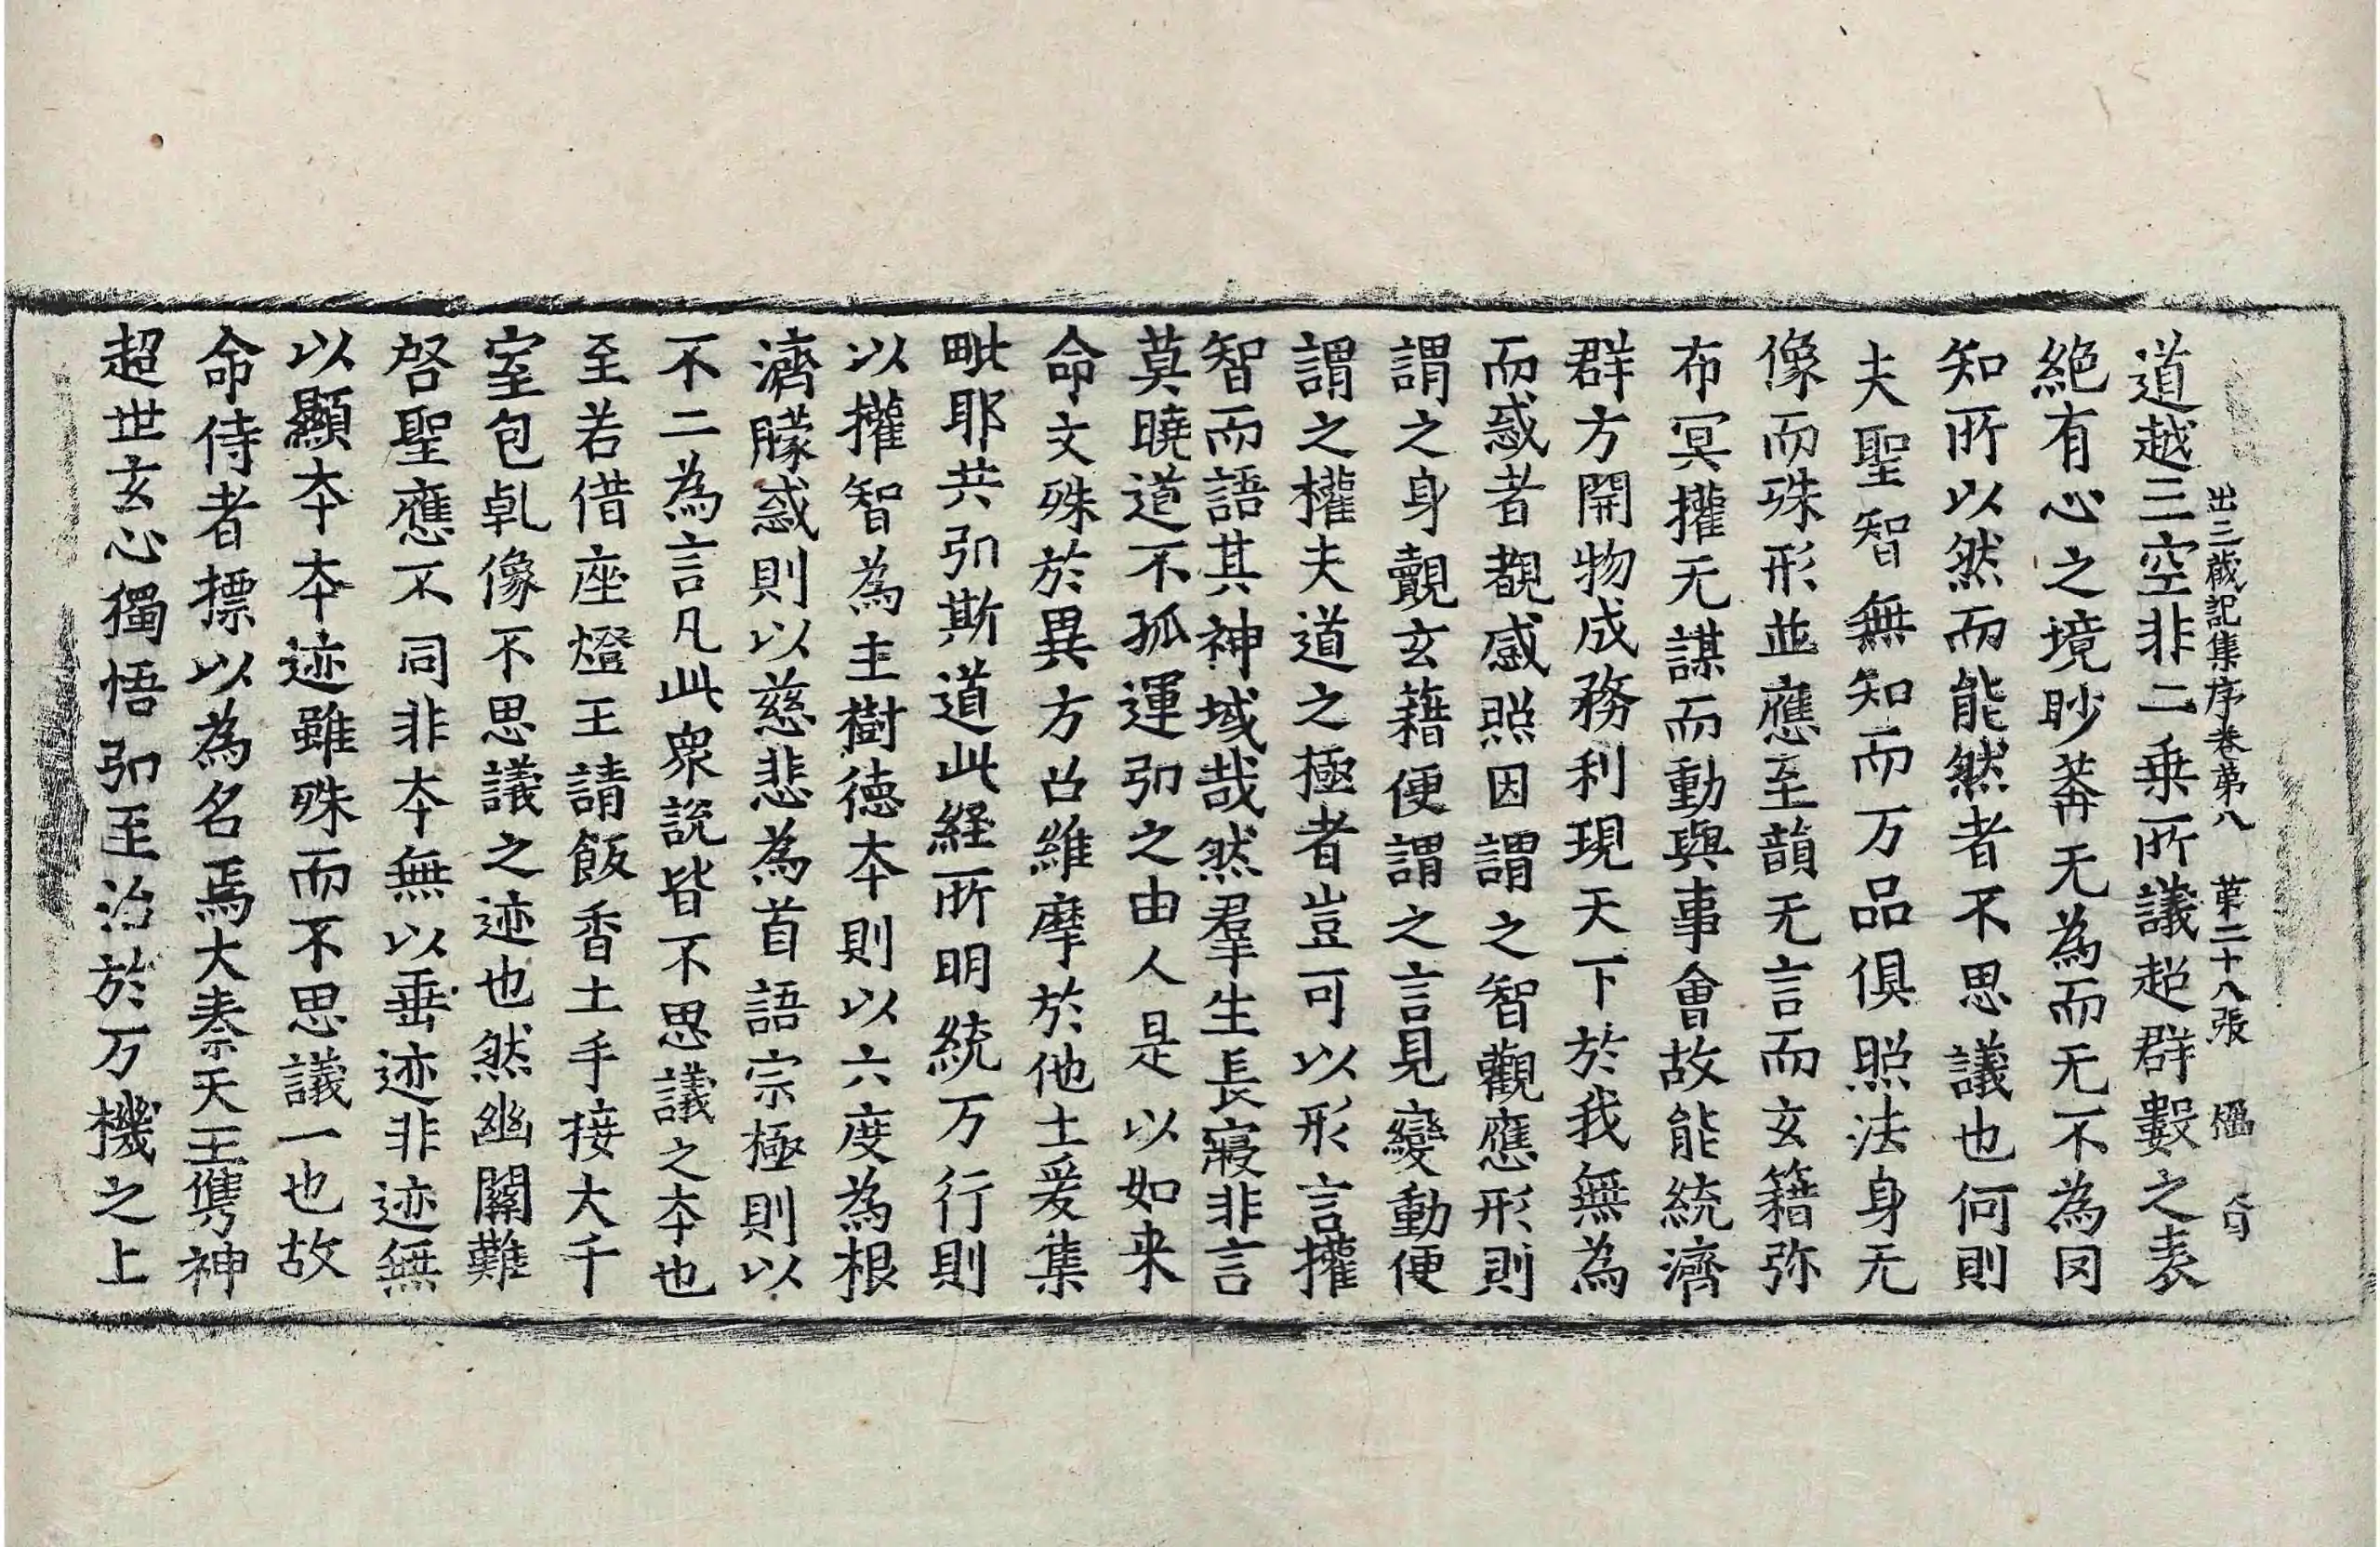 出三蔵記集序卷第八　第二十八張　楹
道越三空非二乗所議超群數之表
絶有心之境眇莽无為而无不為罔
知所以然而能然者不思議也何則
夫聖智無知而万品俱照法身无
像而殊形並應至韻无言而玄籍弥
布冥攉无謀而動與事會故能統濟
群方開物成務利現天下於我無為
而惑者覩感照因謂之智觀應形則
謂之身覿玄藉便謂之言見變動便
謂之權夫道之極者豈可以形言攉
智而語其神域哉然羣生長寢非言
莫曉道不孤運弘之由人是以如来
命文殊於異方召維摩於他土爰集
毗耶共弘斯道此経所明統万行則
以攉智為主樹徳本則以六度為根
濟朦惑則以慈悲為首語宗極則以
不二為言凡此衆說皆不思議之本也
至若借座燈王請飯香土手接大千
室包乹像不思議之迹也然幽關難
啓聖應不同非本無以垂迹非迹無
以顯本本迹雖殊而不思議一也故
命侍者摽以為名焉大秦天王雋神
超世玄心獨悟弘至治於万機之上